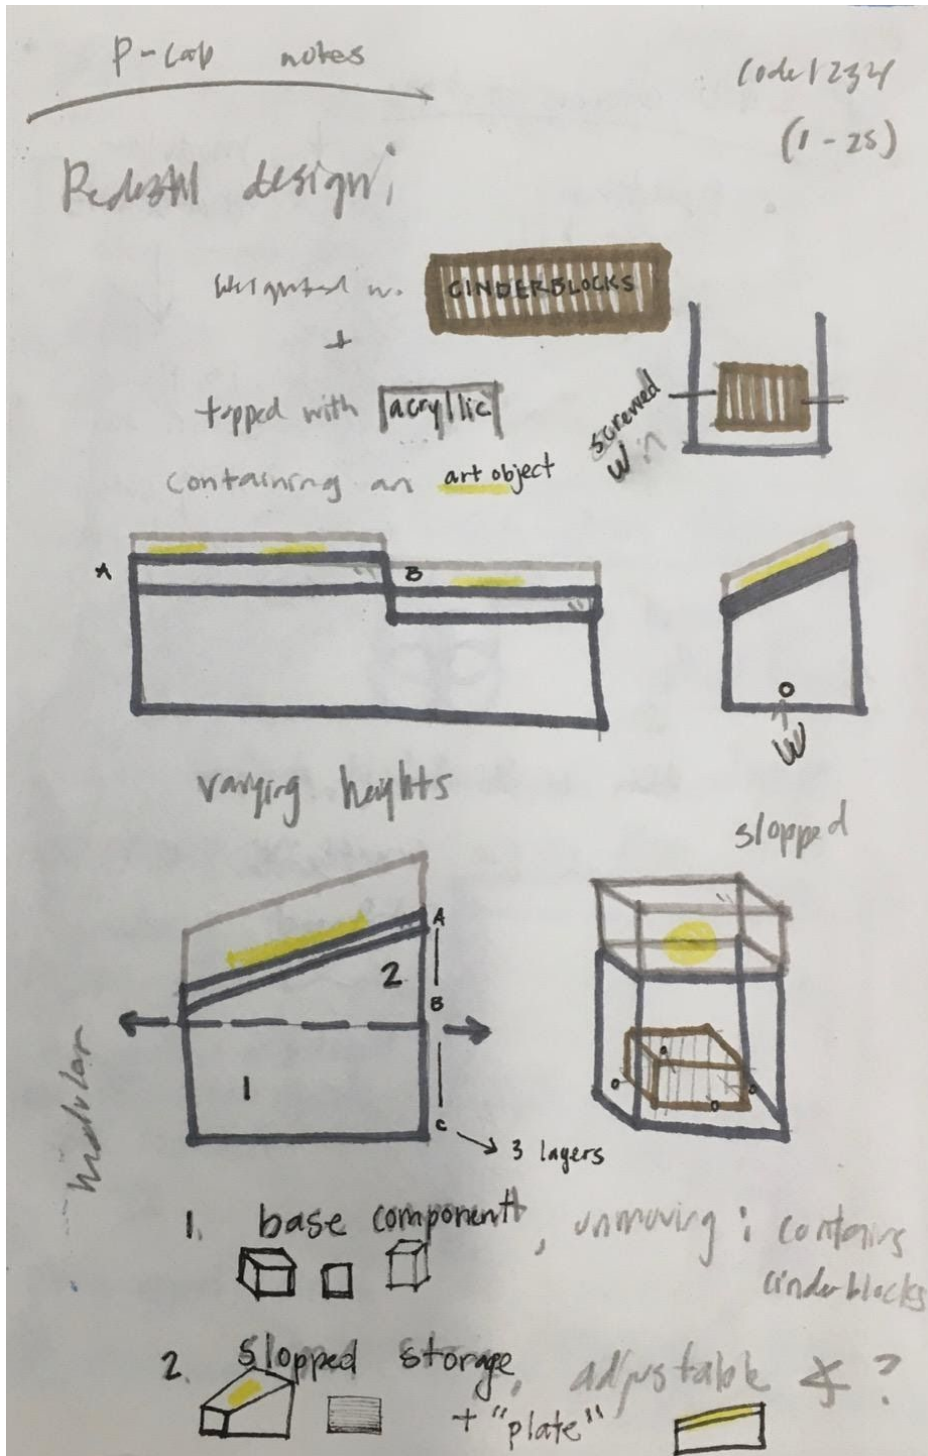 P-Lab notes
Code 1234
(1-25)
Pedestal design;
Weighted w. CINDERBLOCKS
+
topped with acryllic
screwed
W in
containing an art object
A
B
W
varying heights
slopped
A
2
B
1
modular
C
3 layers
1. base component, unmoving: contains
cinderblocks
2. slopped storage, adjustable ∡?
+ "plate"